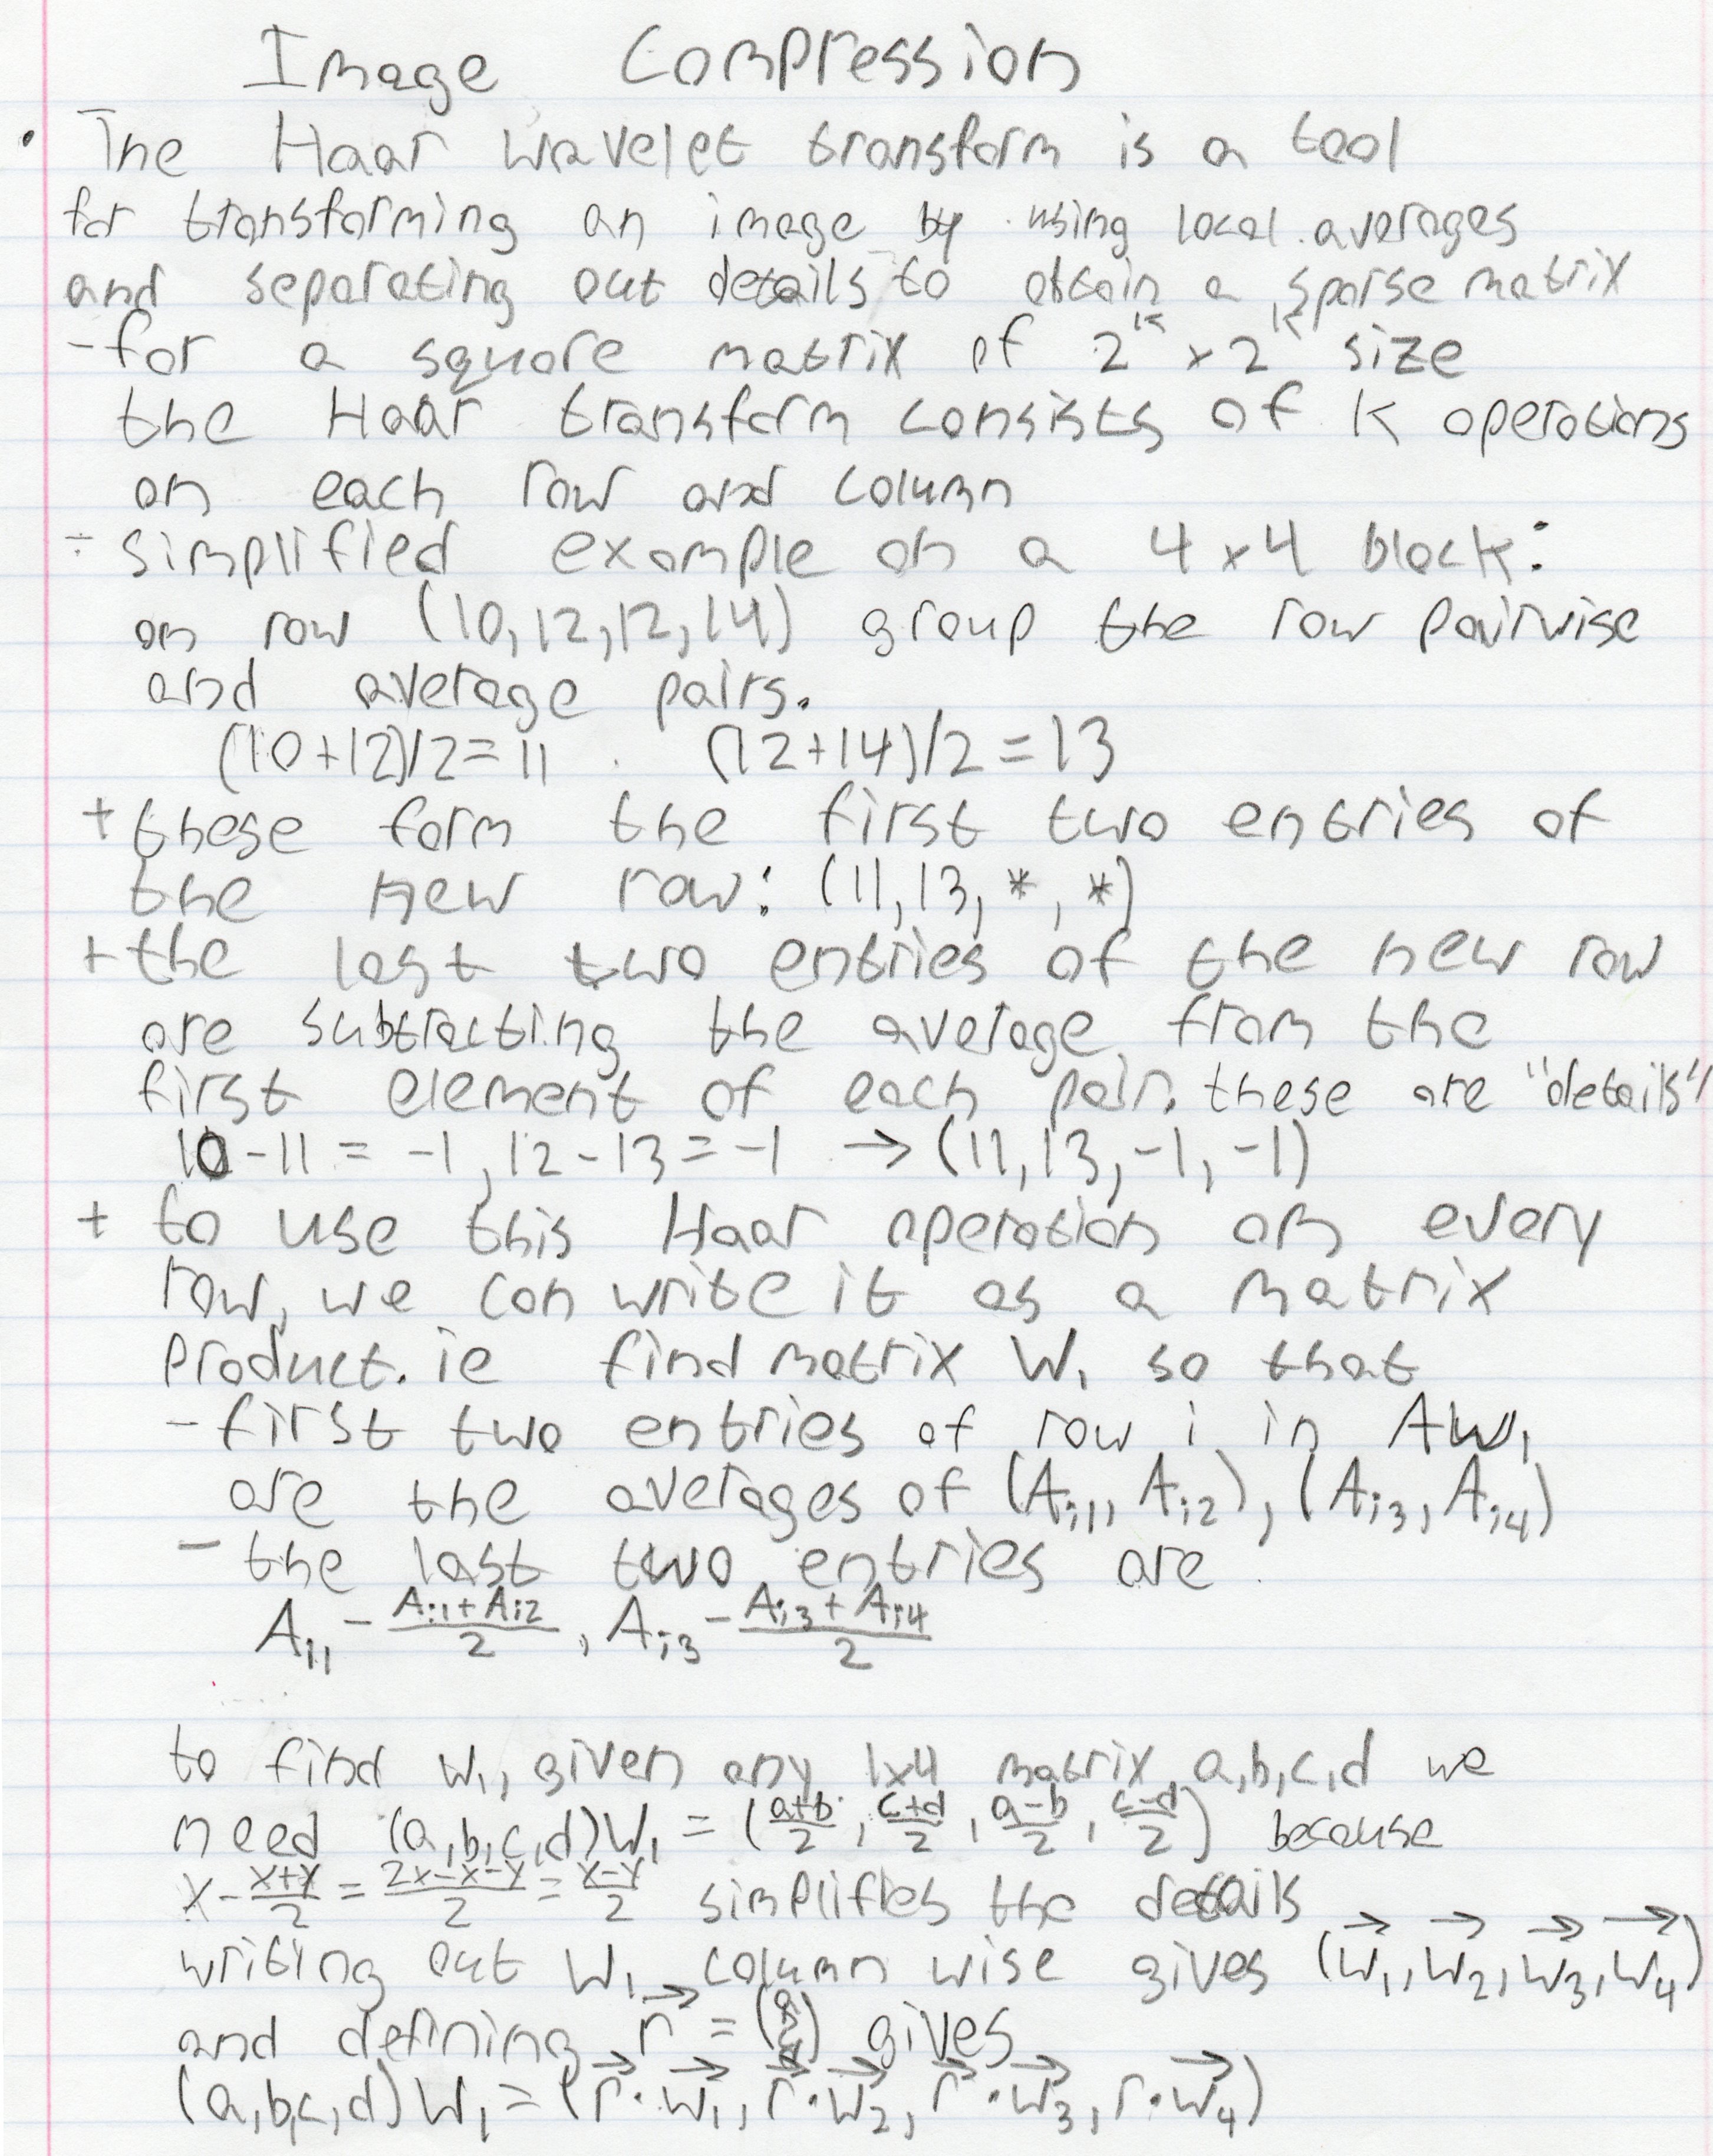 Image Compression
• The Haar wavelet transform is a tool
for transforming an image by using local averages
and separating out details to obtain a sparse matrix
- for a square matrix of 2^k × 2^k size
the Haar transform consists of k operations
on each row and column
- simplified example on a 4×4 block:
on row (10,12,12,14) group the row pairwise
and average pairs.
(10+12)/2=11 (12+14)/2=13
+ these form the first two entries of
the new row: (11,13,*,*)
+ the last two entries of the new row
are subtracting the average from the
first element of each pair. these are "details"
10-11 = -1, 12-13 = -1 → (11,13,-1,-1)
+ to use this Haar operation on every
row, we can write it as a matrix
product. ie find matrix W₁ so that
- first two entries of row i in AW₁
are the averages of (A_i1, A_i2), (A_i3, A_i4)
- the last two entries are
A_11 - (A_i1+A_i2)/2, A_i3 - (A_i3+A_i4)/2
to find W₁, given any 1x4 matrix a,b,c,d we
need (a,b,c,d)W₁ = ((a+b)/2, (c+d)/2, (a-b)/2, (c-d)/2) because
x - (x+y)/2 = (2x-x-y)/2 = (x-y)/2 simplifies the details
writing out W₁ column wise gives (w⃗₁, w⃗₂, w⃗₃, w⃗₄)
and defining r⃗ = (a b c d) gives
(a,b,c,d)W₁ = (r⃗·w⃗₁, r⃗·w⃗₂, r⃗·w⃗₃, r·w⃗₄)